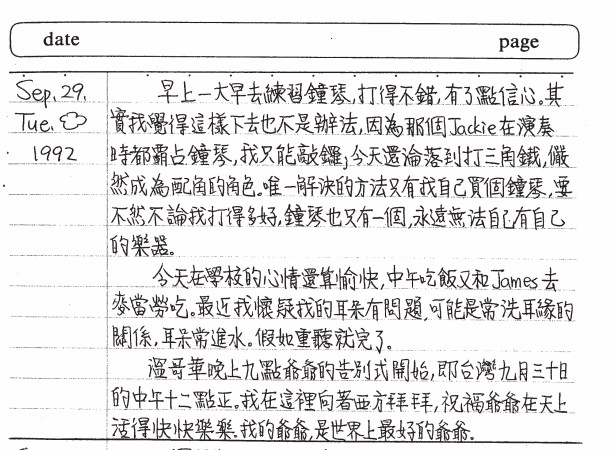 date
page
Sep. 29.
Tue.
1992
早上一大早去練習鐘琴,打得不錯,有了點信心。其
實我覺得這樣下去也不是辦法,因為那個Jackie在演奏
時都霸占鐘琴,我只能敲鑼;今天還淪落到打三角鐵,儼
然成為配角的角色。唯一解決的方法只有我自己買個鐘琴,要
不然不論我打得多好,鐘琴也只有一個,永遠無法自己有自己
的樂器。
今天在學校的心情還算愉快,中午吃飯又和James去
麥當勞吃。最近我懷疑我的耳朵有問題,可能是常洗耳緣的
關係,耳朵常進水。假如重聽就完了。
溫哥華晚上九點爺爺的告別式開始,即台灣九月三十日
的中午十二點正。我在這裡向著西方拜拜,祝福爺爺在天上
活得快快樂樂.我的爺爺,是世界上最好的爺爺.